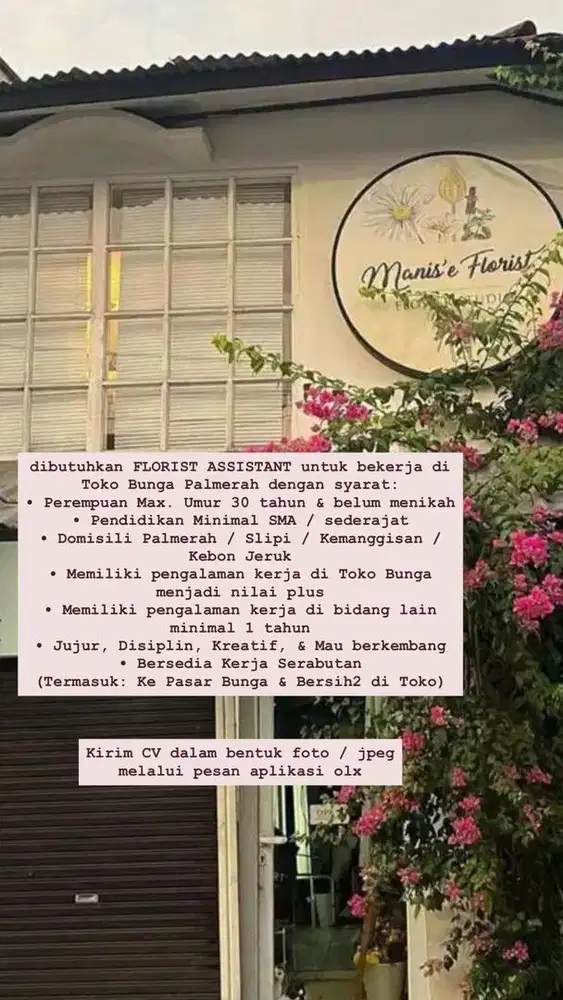 Manis'e Florist
dibutuhkan FLORIST ASSISTANT untuk bekerja di
Toko Bunga Palmerah dengan syarat:
• Perempuan Max. Umur 30 tahun & belum menikah
• Pendidikan Minimal SMA / sederajat
• Domisili Palmerah / Slipi / Kemanggisan /
Kebon Jeruk
• Memiliki pengalaman kerja di Toko Bunga
menjadi nilai plus
• Memiliki pengalaman kerja di bidang lain
minimal 1 tahun
• Jujur, Disiplin, Kreatif, & Mau berkembang
• Bersedia Kerja Serabutan
(Termasuk: Ke Pasar Bunga & Bersih2 di Toko)
Kirim CV dalam bentuk foto / jpeg
melalui pesan aplikasi olx